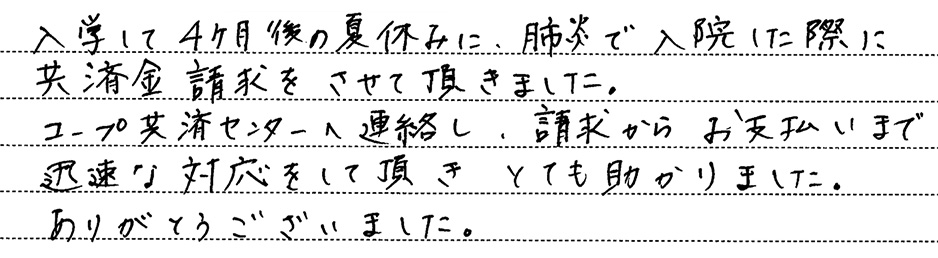 入学して4ヶ月後の夏休みに、肺炎で入院した際に
共済金請求をさせて頂きました。
コープ共済センターへ連絡し、請求からお支払いまで
迅速な対応をして頂きとても助かりました。
ありがとうございました。